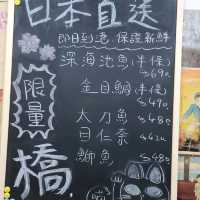 日本直送
即日到港，保證新鮮
限量
深海池魚(半條)
$690
金目鯛(半條)
$490
太刀魚 $480
目仁奈 $620
鰤魚 $480
橋